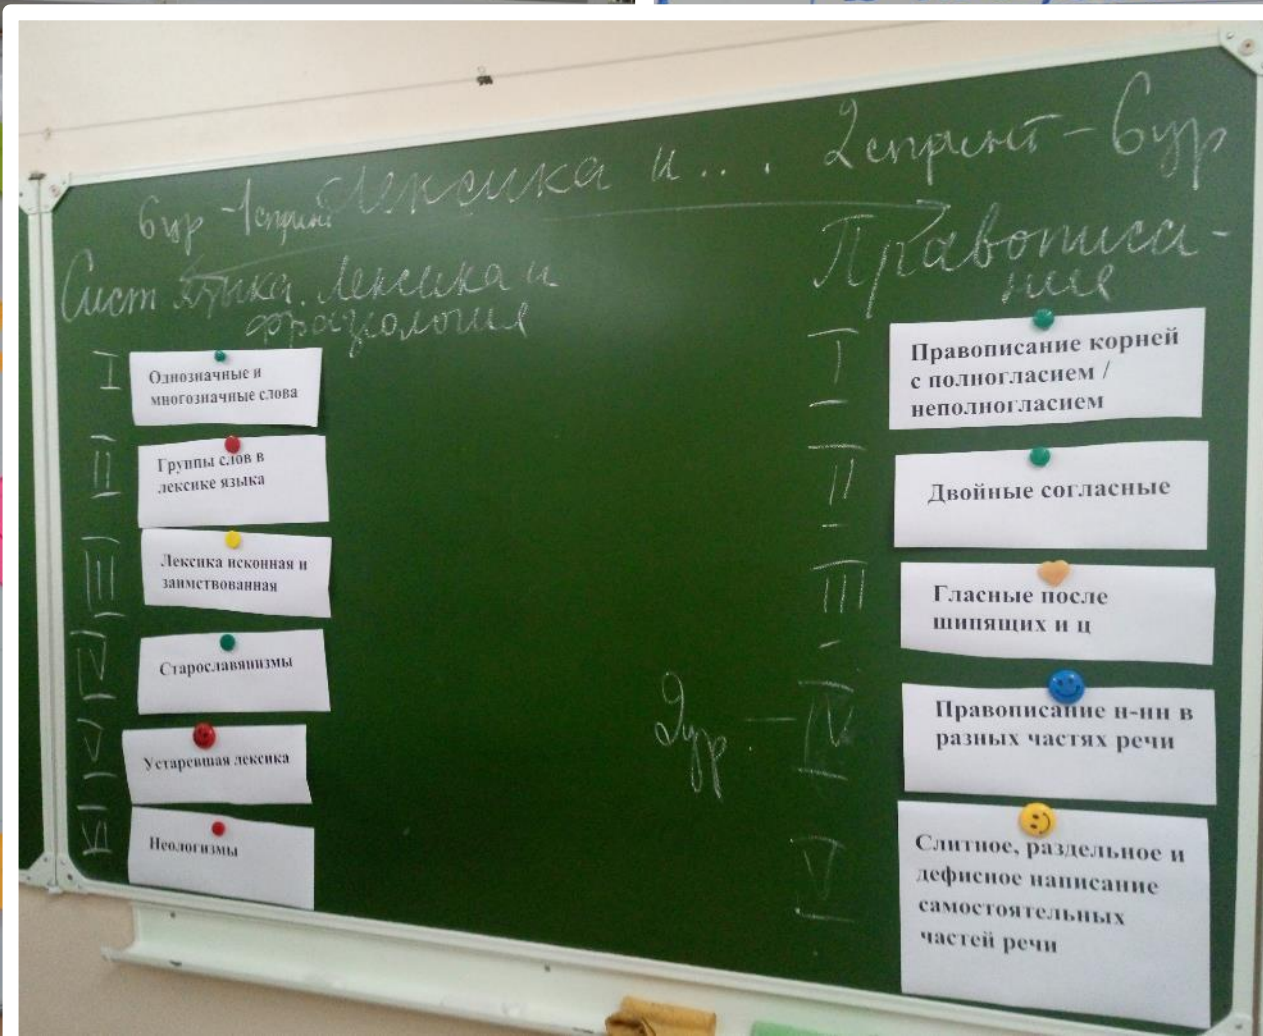 Лексика и... . 2 спринт - 6 ур
6 ур - 1 спринт
Сист языка. Лексика и
фразеология
I
Однозначные и
многозначные слова
II
Группы слов в
лексике языка
III
Лексика исконная и
заимствованная
IV
Старославянизмы
V
Устаревшая лексика
VI
Неологизмы
Правописа-
ние
I
Правописание корней
с полногласием /
неполногласием
II
Двойные согласные
III
Гласные после
шипящих и ц
2 ур. - IV
Правописание н-нн в
разных частях речи
V
Слитное, раздельное и
дефисное написание
самостоятельных
частей речи